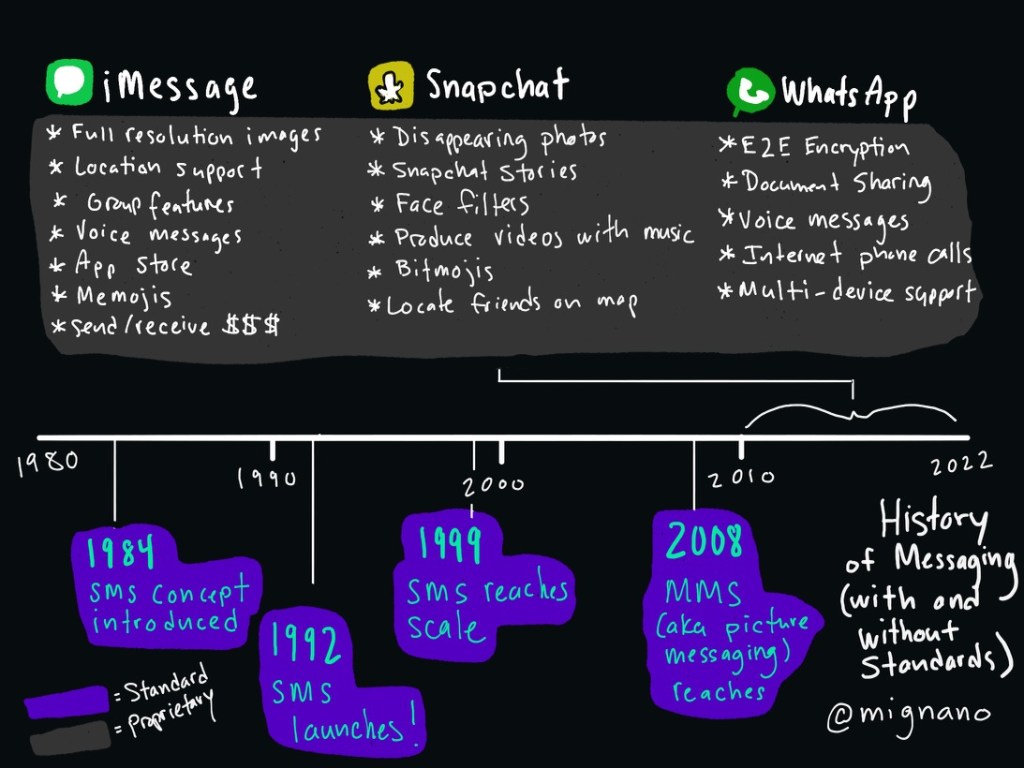 iMessage
* Full resolution images
* Location support
* Group features
* Voice messages
* App Store
* Memojis
* Send/receive $$$
Snapchat
* Disappearing photos
* Snapchat Stories
* Face filters
* Produce videos with music
* Bitmojis
* Locate friends on map
WhatsApp
* E2E Encryption
* Document Sharing
* Voice messages
* Internet phone calls
* Multi-device support
1980
1990
2000
2010
2022
1984
SMS concept
introduced
1992
SMS
launches!
1999
SMS reaches
scale
2008
MMS
(aka picture
messaging)
reaches
History
of Messaging
(with and
without
Standards)
@mignano
= Standard
= Proprietary